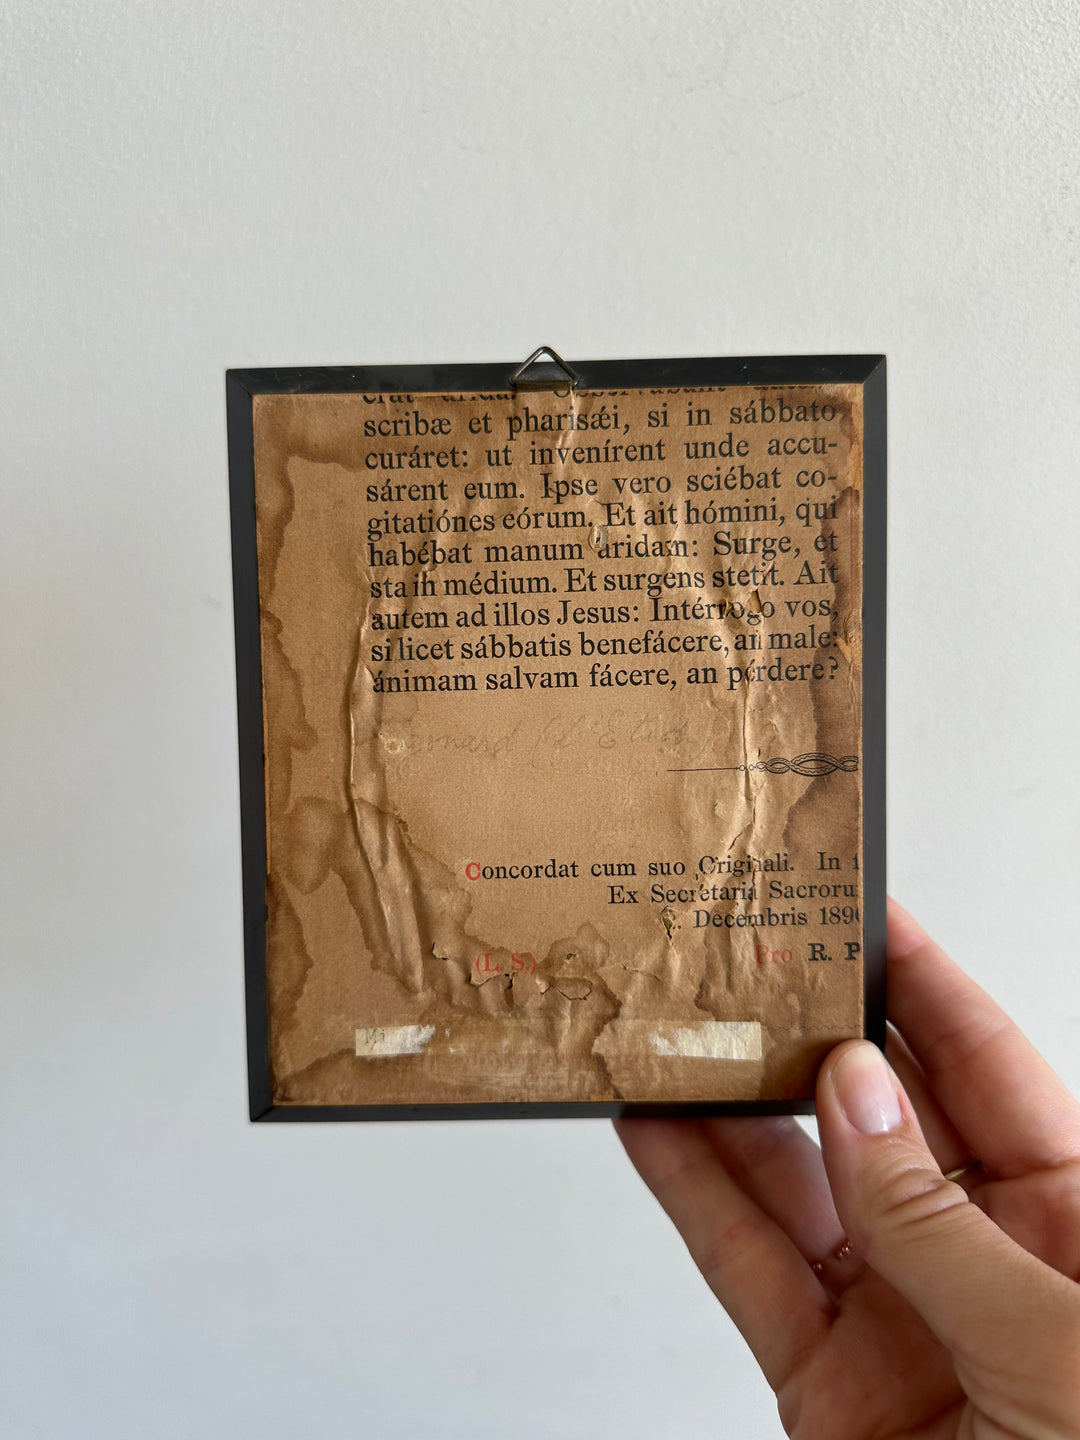 scribæ et pharisǽi, si in sábbato
curáret: ut invenírent unde accu-
sárent eum. Ipse vero sciébat co-
gitatiónes eórum. Et ait hómini, qui
habébat manum aridam: Surge, et
sta in médium. Et surgens stetit. Ait
autem ad illos Jesus: Intérrogo vos,
si licet sábbatis benefácere, an male:
ánimam salvam fácere, an pérdere?
Concordat cum suo Originali. In
Ex Secretaria Sacroru
Decembris 189
(L. S.) Pro R. P
Mi